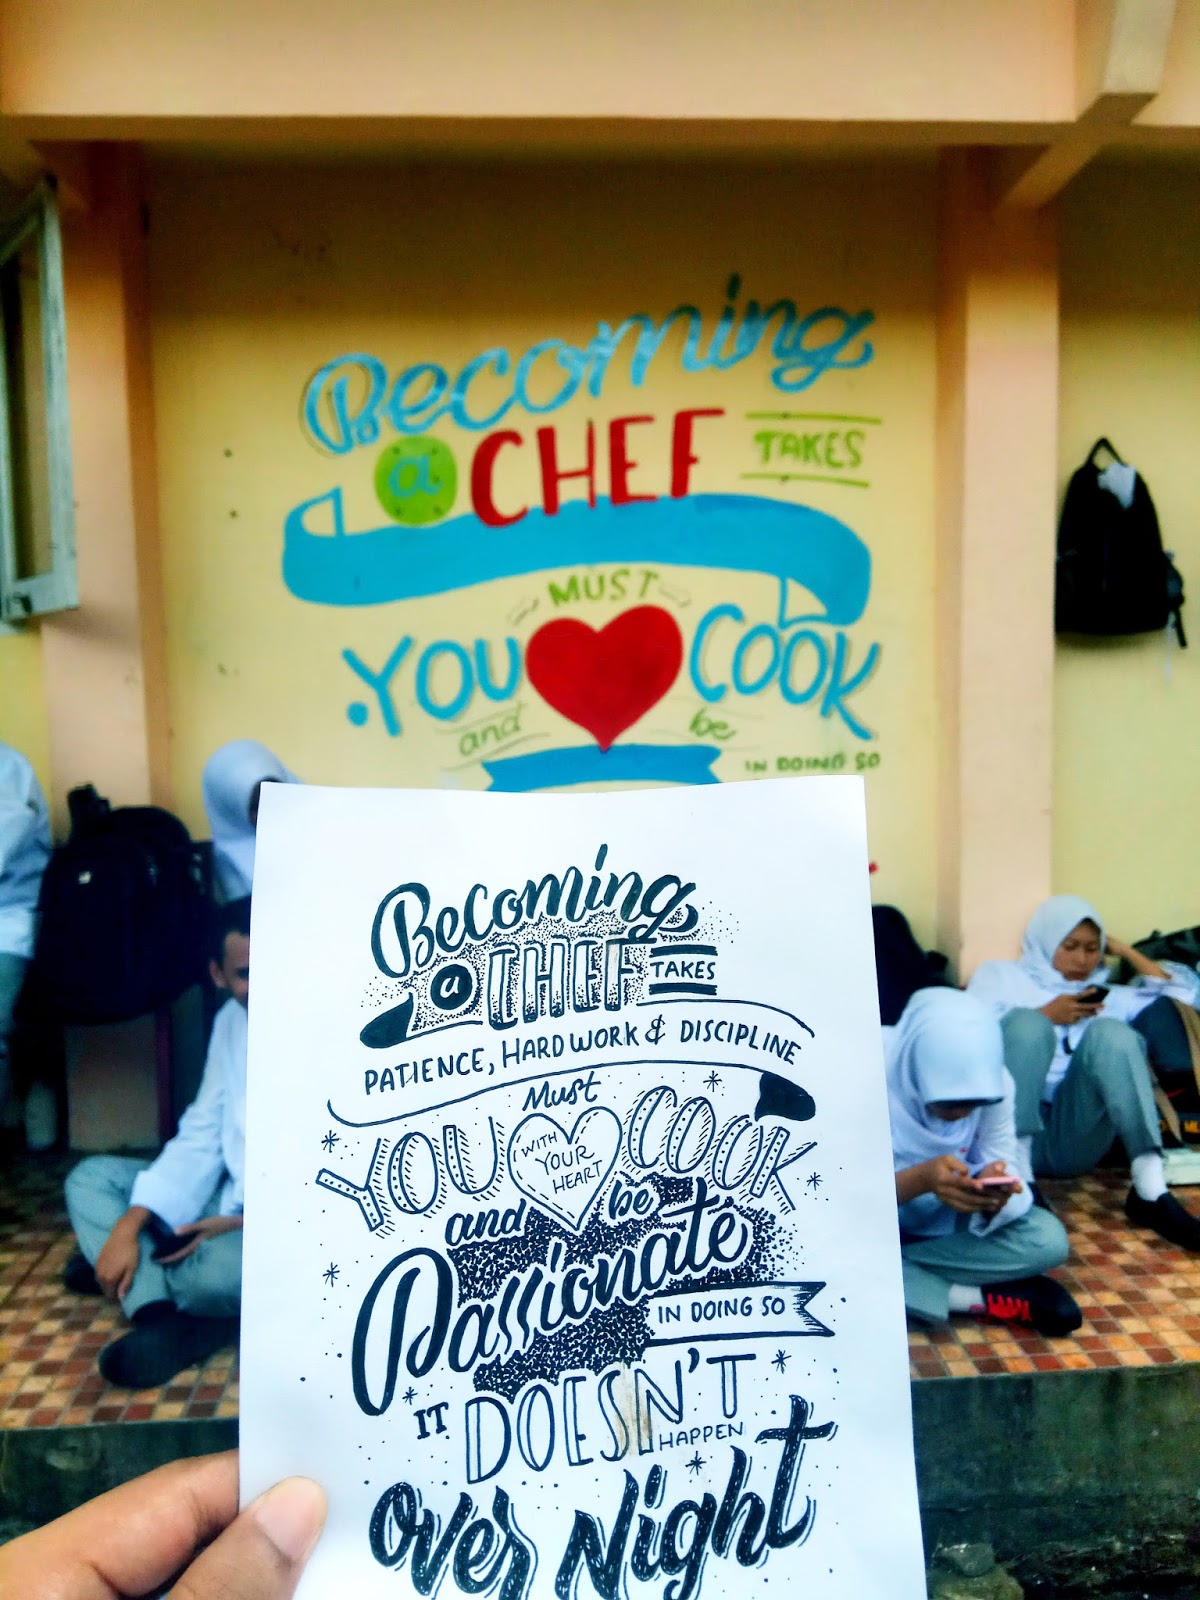 Becoming
a CHEF TAKES
MUST
YOU COOK
and be
IN DOING SO
Becoming
a CHEF TAKES
PATIENCE, HARD WORK & DISCIPLINE
Must
YOU WITH YOUR HEART COOK
and be
Passionate
IN DOING SO
IT DOESN'T
HAPPEN
Over Night